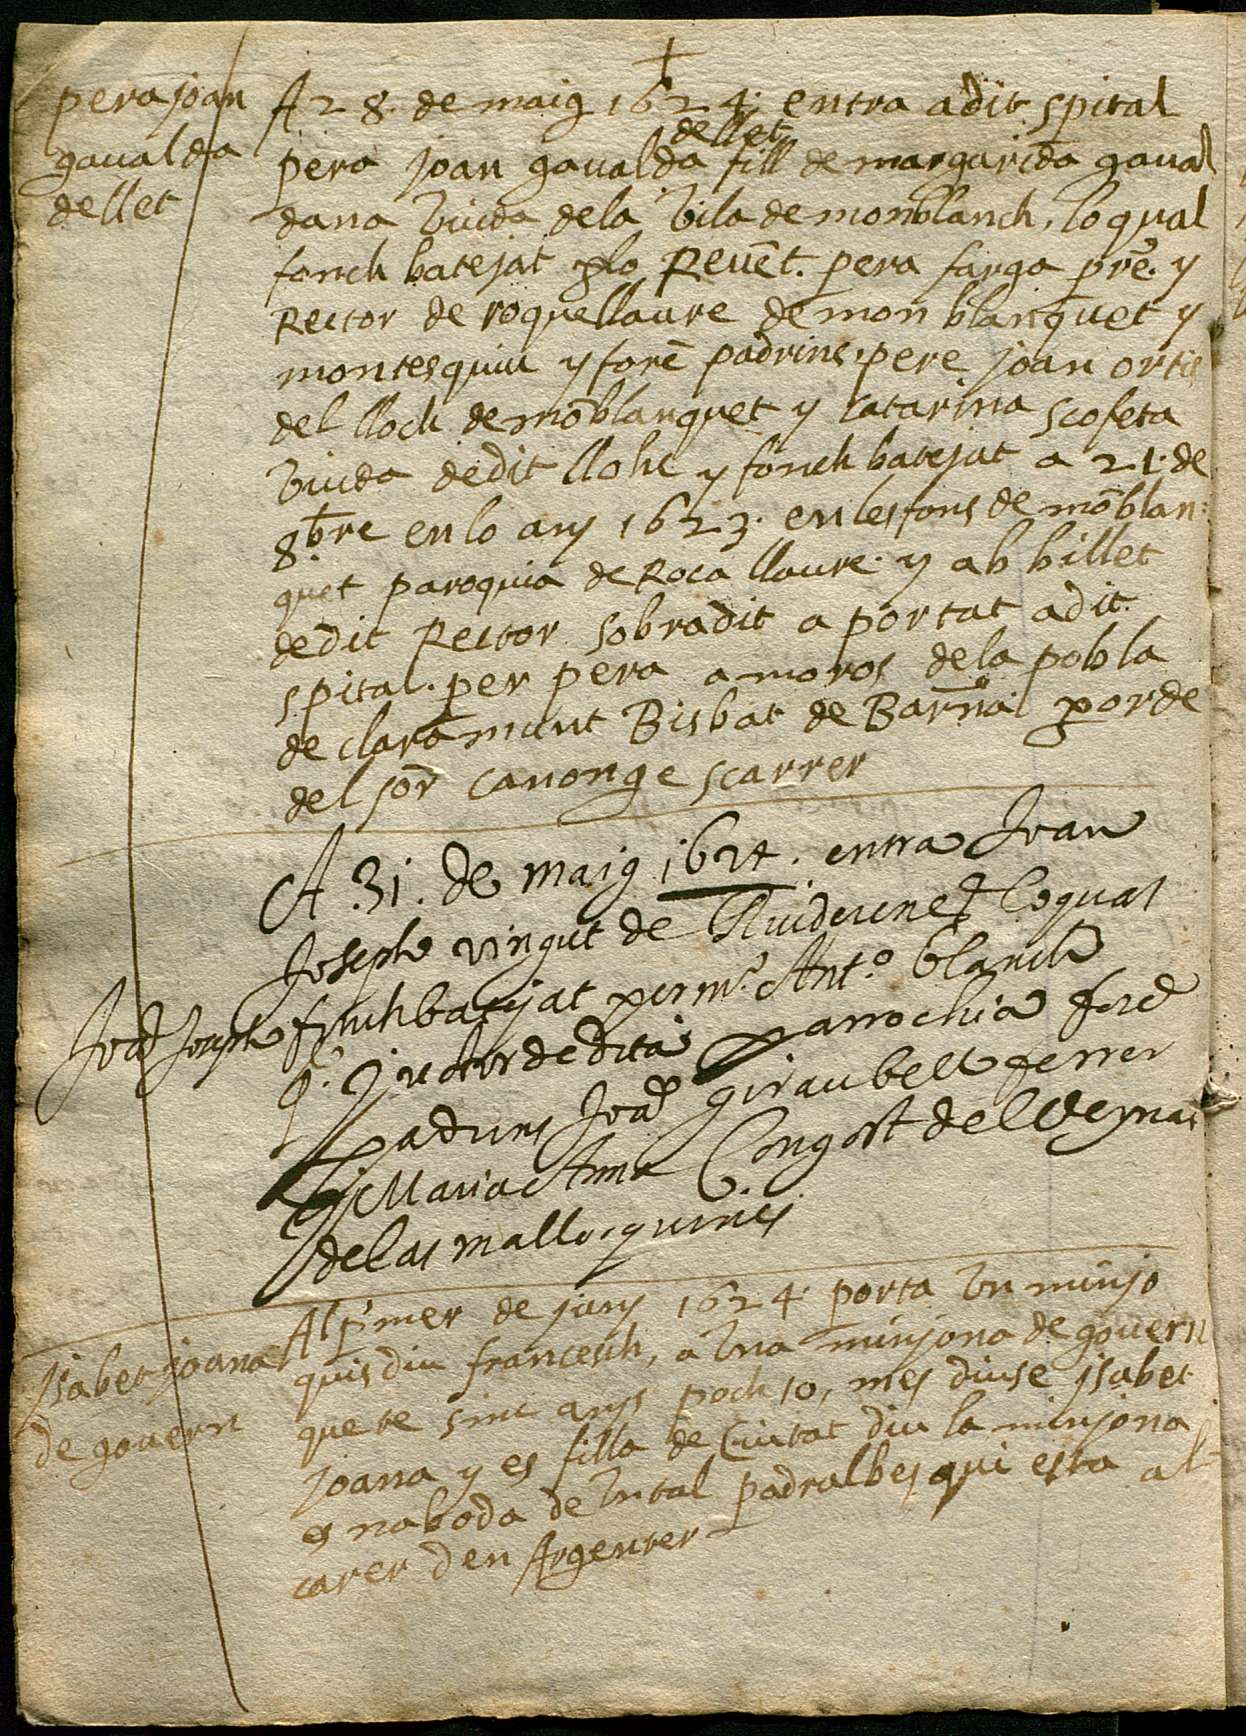 †
pera joan
gaualda
de llet
A 28. de maig 1624. entra a dit spital
de llet
pera joan gaualda fill de margarida gaual
dana biuda dela bila de monblanch, lo qual
fonch batejat plo Reuēt. pera farga prē. y
Rector de roquellaure de monblanquet y
montesquiu y forē padrins, pere joan ortis
del lloch de mōblanquet y catarina scofeta
biuda de dit llohc y fonch batejat a 21. de
8bre en lo any 1623. en les fons de mōblan:
quet paroquia de Roca llaure. y ab billet
de dit Rector sobradit a portat a dit
spital. per pera amoros dela pobla
de claramunt Bisbat de Barna per orde
del sor canonge scarrer
Joā Joseph
A 31. de maig 1624. entra Joan
Joseph vingut de Ruiderenes loqual
fonch batejat per mr. Ant.º blanch
pr. y rector de dita parrochia forē
padrins Joā giraubell ferrer
y Maria Anna Congost del veynat
de las mallorquines
jsabet joana
de gouern
Al pmer de juny 1624. porta bn minjo
quis diu francesch, a bna minjona de gouern
que te sinc anys poch so, mes diuse jsabet
joana y es filla de Ciutat diu la minjona
es naboda de bn tal padralbes qui esta al
carer den Argenter